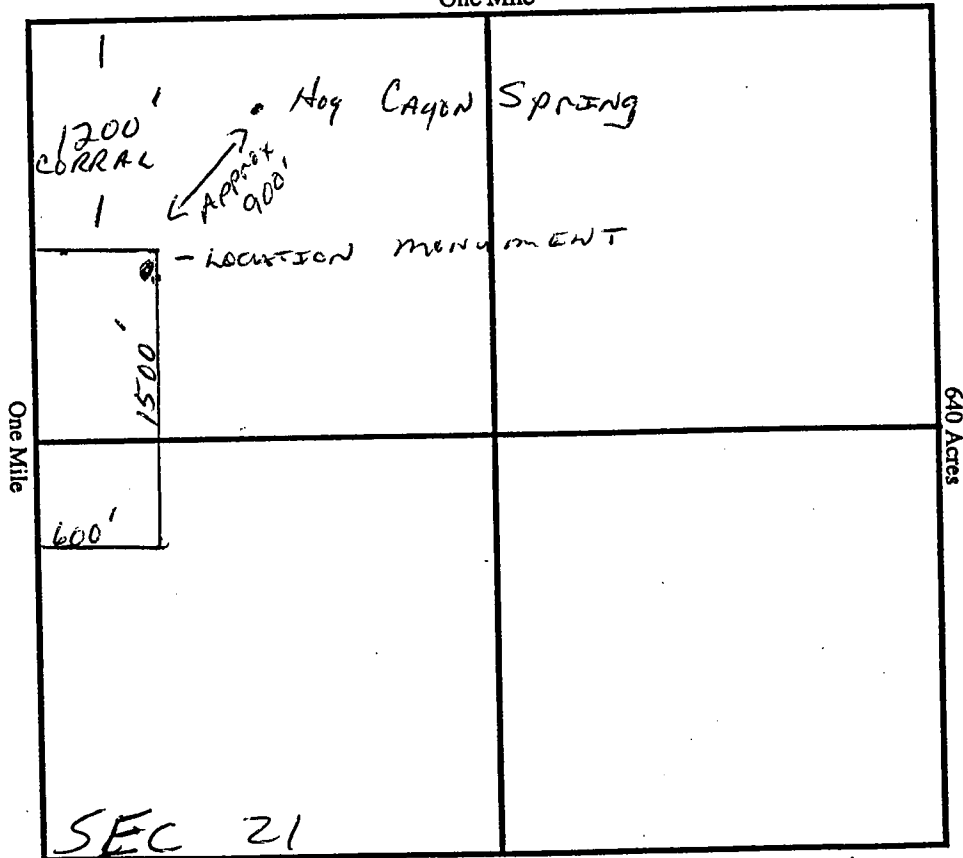 One Mile
1200'
CORRAL
Hog CAyON SPRING
APPROX
900'
- LOCATION MONUMENT
1500'
One Mile
640 Acres
600'
SEC 21